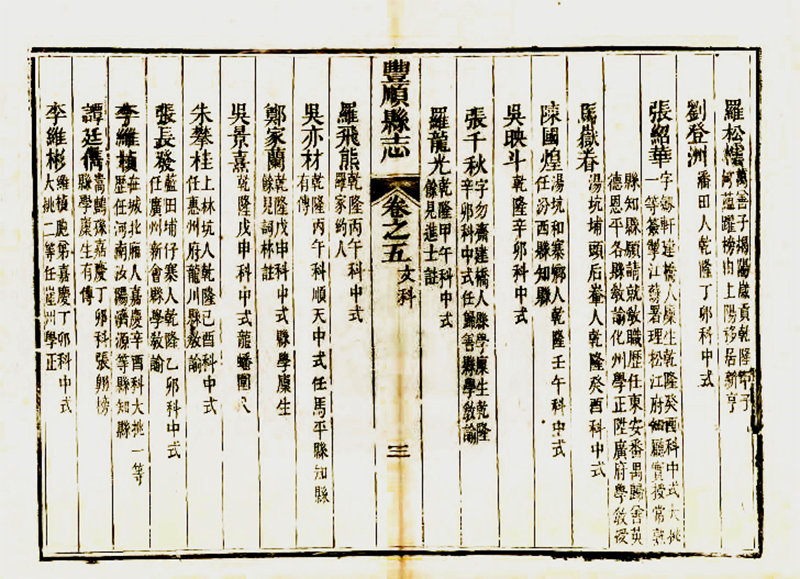 羅松 萬善子揭陽歲貢乾隆甲子
河 躍榜由上陽移居新亨
劉登洲 潘田人乾隆丁卯科中式
張紹華 字 軒建橋人廩生乾隆癸酉科中式大挑
一等簽掣江蘇署理松江府知廳實授常
縣知縣願請就教職歷任東安番禺歸善英
德恩平各縣教諭化州學正陞廣府學教授
馬嶽春 湯坑埔頭后峯人乾隆癸酉科中式
陳國煌 湯坑和寨鄉人乾隆壬午科中式
任汾西縣知縣
吳映斗 乾隆辛卯科中式
張千秋 字勿齋建橋人縣學廩生乾隆
辛卯科中式任歸善縣學教諭
羅龍光 乾隆甲午科中式
餘見進士註
豐順縣志 卷之五 文科 三
羅飛熊 乾隆丙午科中式
羅家約人
吳亦材 乾隆丙午科順天中式任馬平縣知縣
有傳
鄭家蘭 乾隆戊申科中式縣學廩生
餘見詞林註
吳景熹 乾隆戊申科中式龍蟠圍人
朱攀桂 上林坑人乾隆己酉科中式
任惠州府龍川縣教諭
張長發 藍田埔仔寨人乾隆乙卯科中式
任廣州新會縣學教諭
李維楨 在城北廂人嘉慶辛酉科大挑一等
歷任河南汝陽濟源等縣知縣
譚廷儁 嵩鶴 嘉慶丁卯科張翱榜
縣學廩生有傳
李維彬 維楨胞弟嘉慶丁卯科中式
大挑二等任崖州學正